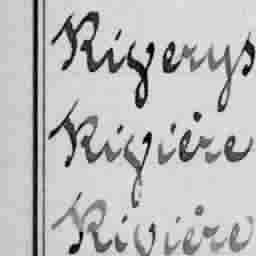 Rigerys
Rigière
Rivière